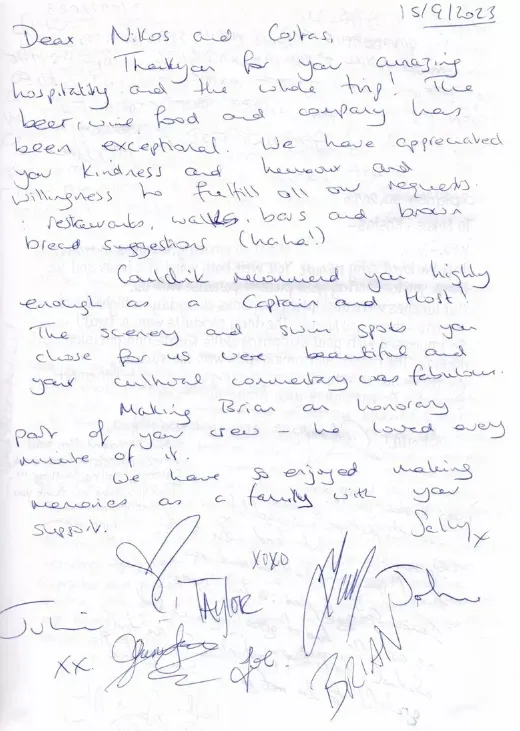 15/9/2023
Dear Nikos and Costas,
Thankyou for your amazing
hospitality and the whole trip! The
beer, wine, food and company has
been exceptional. We have appreciated
your kindness and humour and
willingness to fulfill all our requests
: restaurants, walks, bars and brown
bread suggestions (haha!)
Couldn't recommend you highly
enough as a Captain and Host!
The scenery and swim spots you
chose for us were beautiful and
your cultural commentary was fabulous.
Making Brian an honorary
part of your crew - he loved every
minute of it.
We have so enjoyed making
memories as a family with your
support.
Sally x
xoxo
TAYLOR
John
Julie
xx.
BRIAN